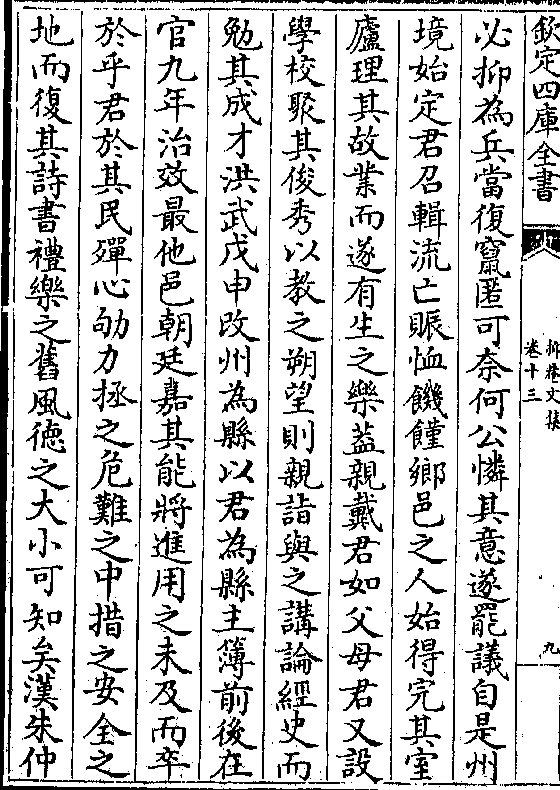 欽定四庫全書
抑菴文集
卷十三
九
必抑為兵當復竄匿可奈何公憐其意遂罷議自是州
境始定君召輯流亡賑恤饑饉鄉邑之人始得完其室
廬理其故業而遂有生之樂葢親戴君如父母君又設
學校聚其俊秀以教之朔望則親詣與之講論經史而
勉其成才洪武戊申改州為縣以君為縣主簿前後在
官九年治效最他邑朝廷嘉其能將進用之未及而卒
於乎君於其民殫心劬力拯之危難之中措之安全之
地而復其詩書禮樂之舊風德之大小可知矣漢朱仲